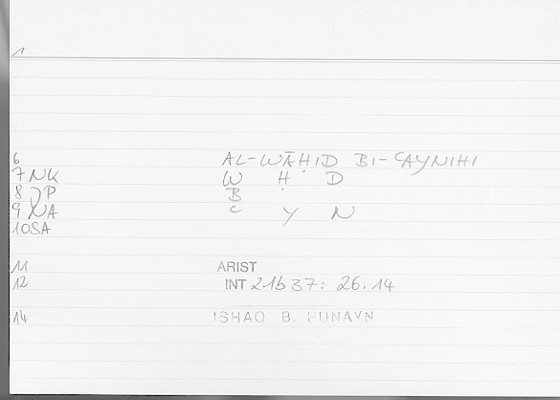 1
6 AL-WĀḤID BI-ʿAYNIHI
7 NK W Ḥ D
8 )P B
9 NA ʿ Y N
10 SA
11 ARIST
12 INT 21b 37: 26.14
14 ISHAQ B. HUNAYN